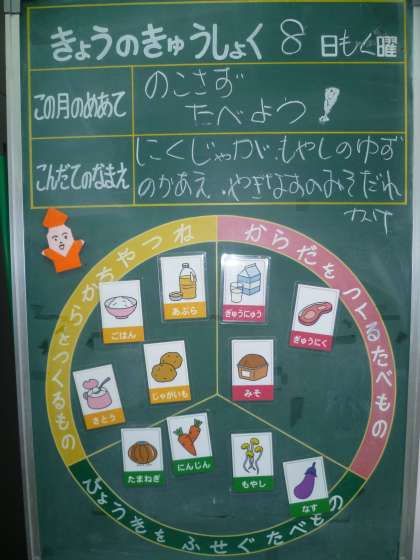 きょうのきゅうしょく 8 日もく曜
この月のめあて
のこさず
たべよう!
こんだてのなまえ
にくじゃが、もやしのゆず
のかあえ、やきなすのみそだれ
かけ
ちからやねつをつくるもの
からだをつくるたべもの
ごはん
あぶら
ぎゅうにゅう
ぎゅうにく
さとう
じゃがいも
みそ
たまねぎ
にんじん
もやし
なす
びょうきをふせぐたべもの